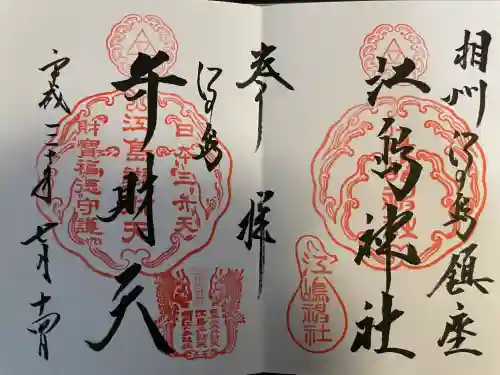 相州江の島鎮座
江島神社
江嶋神社
奉拝
江の島
弁財天
日本三弁天
江島弁財天
財寶福徳守護
平成三十年七月十四日